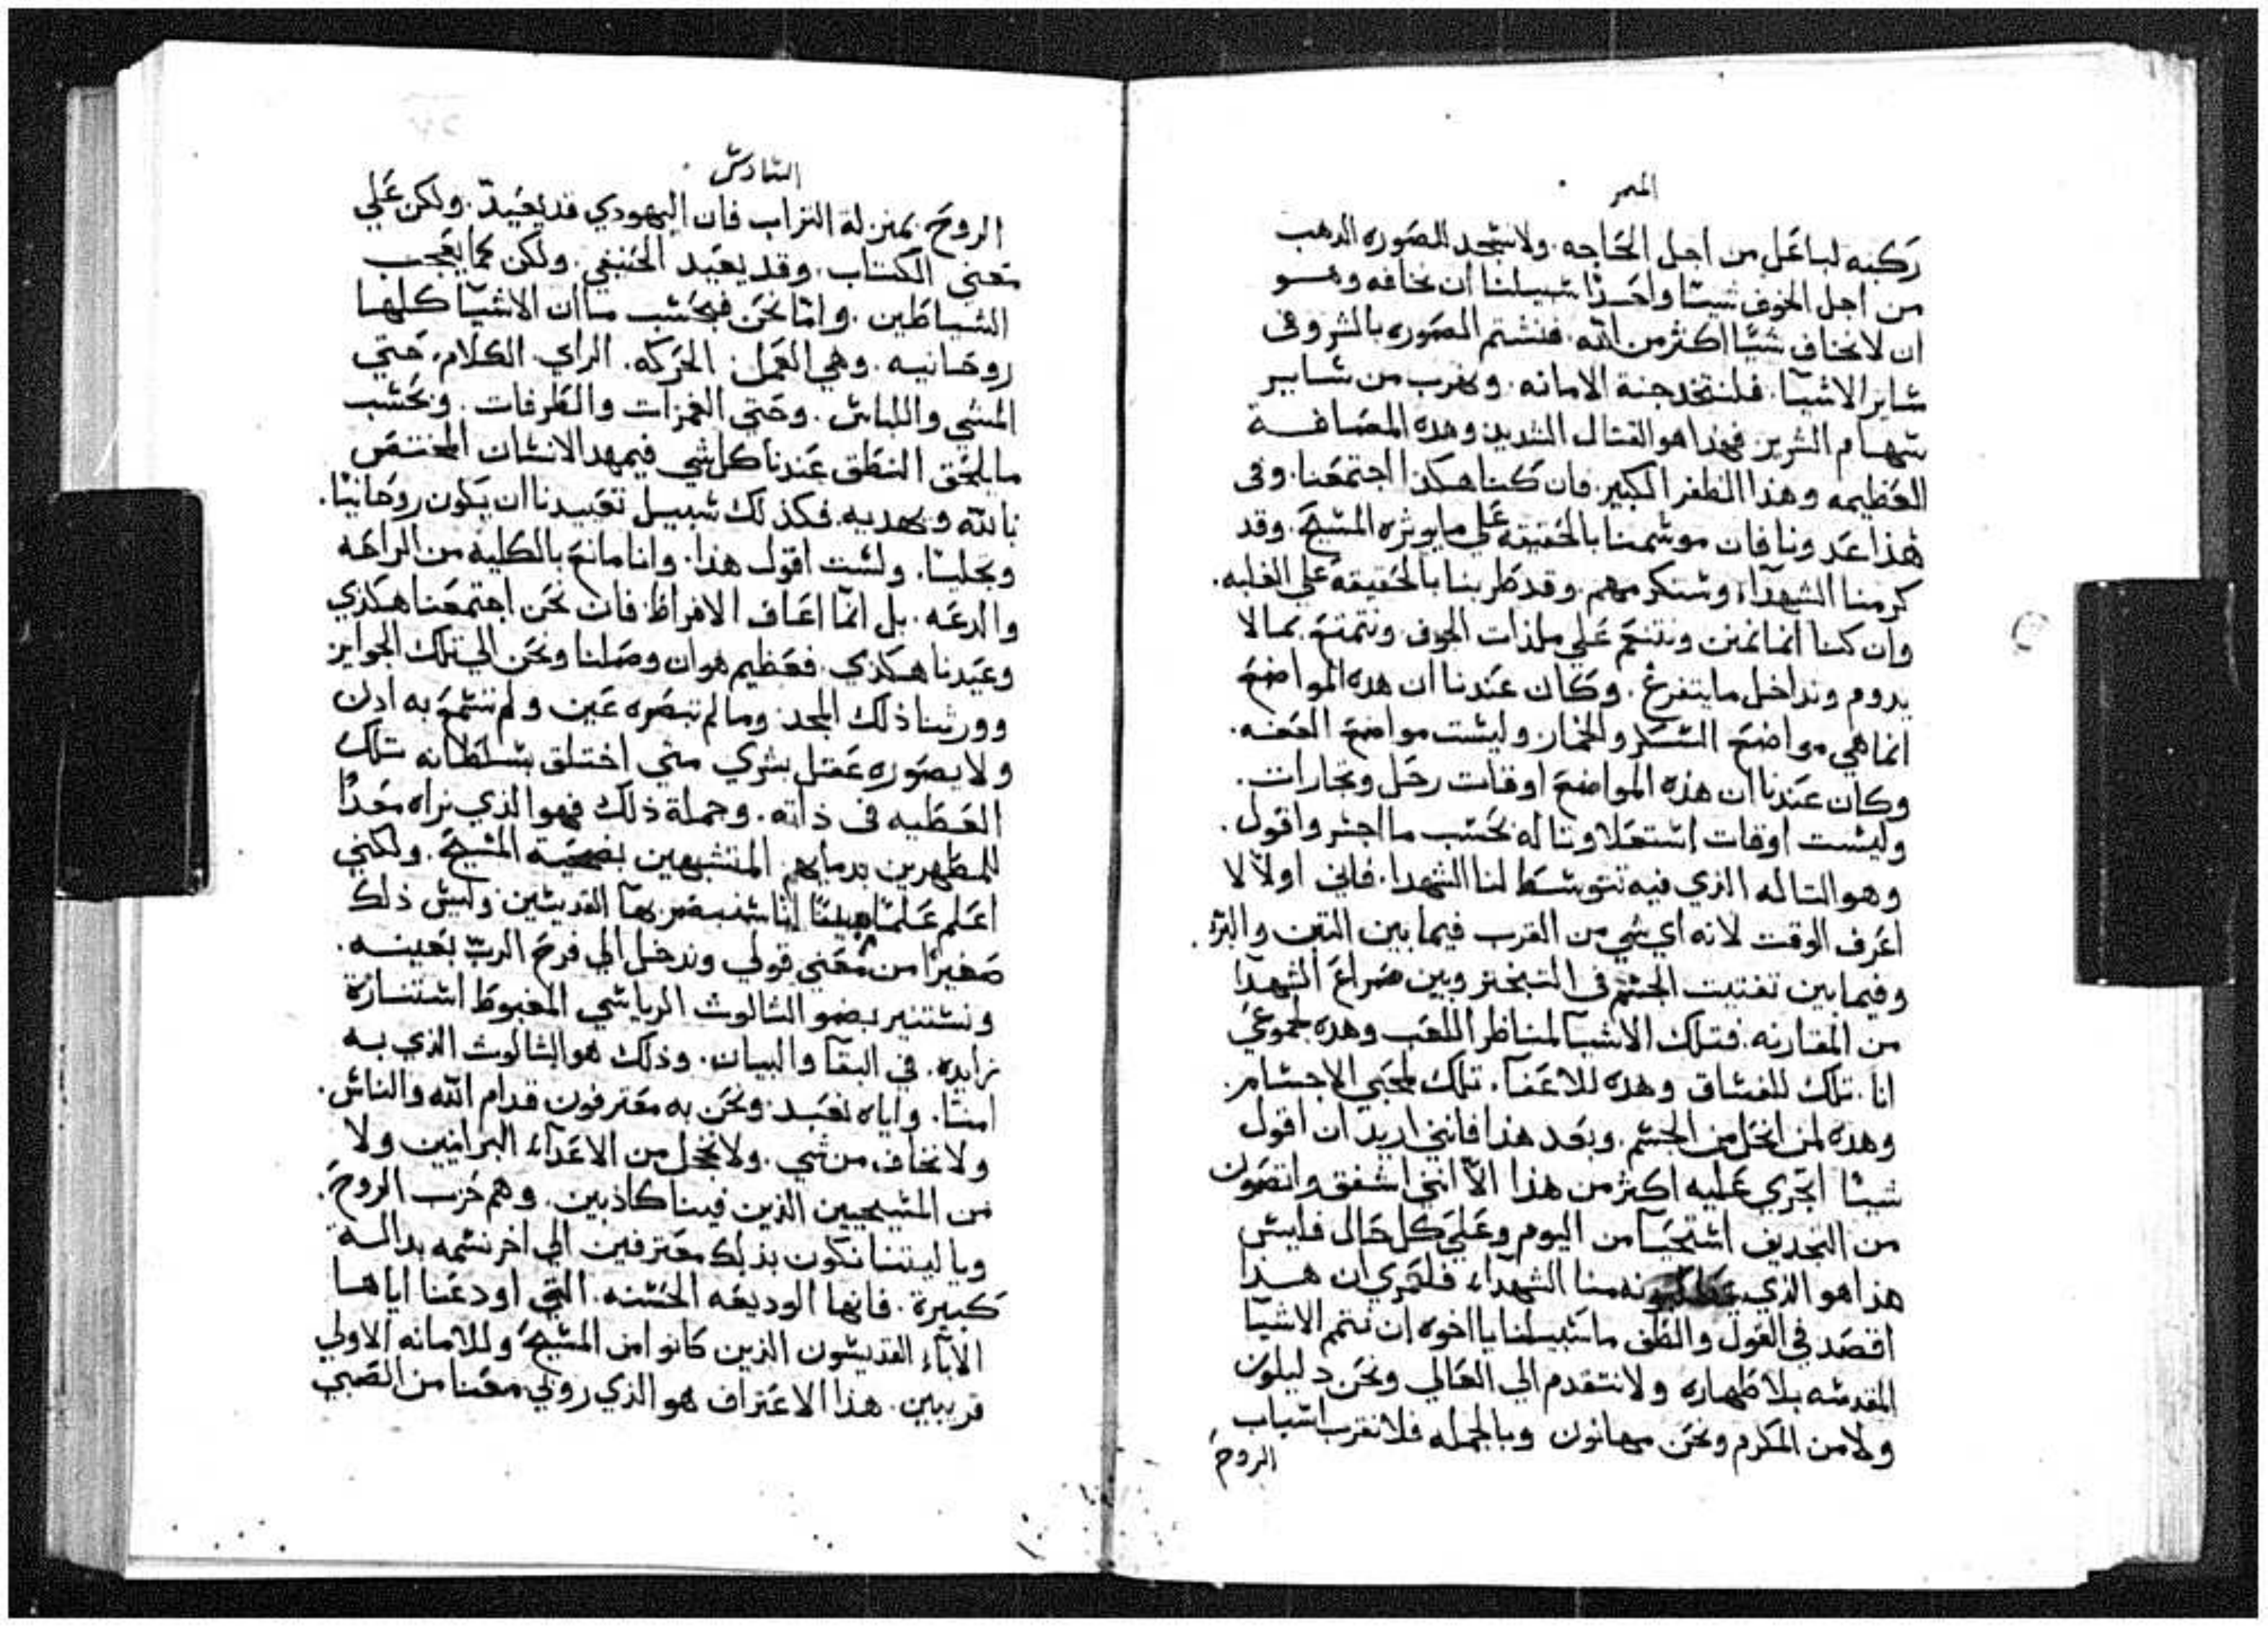 الميمر
ركبه لباعل من اجل الحاجه. ولا نسجد للصوره الدهب
من اجل الخوف شيئا واحدا سبيلنا ان نخافه وهو
ان لا نخاف شيئا اكثر من الله. فلنشتم الصوره بالشر وفى
ساير الاشيا. فلنتخد جنة الامانه. ونهرب من ساير
سهام الشرير فهذا هو القتال الشديد وهده المصافة
العظيمه وهذا الظفر الكبير. فان كنا هكذا اجتمعنا. وفى
هذا عددنا فان موسمنا بالحقيقه على ما يوثره المسيح. وقد
كرمنا الشهداء وسنكرمهم. وقد طربنا بالحقيقه على الغلبه.
وان كنا انما نمتن ونتنعم على ملذات الجوف. ونتمتع بما لا
يدوم ونداخل ما يتفرغ. وكان عندنا ان هده المواضع
انما هي مواضع السكر والخمار وليست مواضع العفه.
وكان عندنا ان هذه المواضع اوقات رحل وتجارات.
وليست اوقات استعلا وتاله بحسب ما اجسر واقول.
وهو التاله الذي فيه تتوسط لنا الشهدا. فاني اولا لا
اعرف الوقت لانه اي شي من القرب فيما بين التبن والبر.
وفيما بين تفتيت الجسم فى التبختر وبين صراع الشهدا
من المقارنه. فتلك الاشيا لمناظر اللعب وهده لجموعي
انا. تلك للفساق وهده للاعفآ. تلك لمحبي الاجسام.
وهده لمن انحل من الجسم. وبعد هذا فانني اريد ان اقول
شيئا اجري عليه اكثر من هذا الا انني اشفق واتصون
من التجديف استحيآ من اليوم وعلي كل حال فليس
هذا هو الذي منا الشهداء فلعمري ان هذا
اقصد في القول والطف ما سبيلنا يا اخوه ان نتمم الاشيا
المقدسه بلا طهاره ولا نتقدم الي العالي ونحن دليلون
ولا من المكرم ونحن مهانون وبالجمله فلا نقرب اسباب
الروح
السادس
الروح بمنزلة التراب فان اليهودي قد يعيد. ولكن علي
معني الكتاب. وقد يعيد الحنيفي. ولكن كما يعجب
الشياطين. واما نحن فبحسب ما ان الاشيا كلها
روحانيه. وهي العمل. الحركه. الراي. الكلام. حتي
المشي واللباس. وحتي الغمزات والطرفات. وبحسب
ما يلحق النطق عندنا كل شي فيمهد الانسان المختص
بالله ويهديه. فكذلك سبيل تعييدنا ان يكون روحانيا.
وبجليسا. ولست اقول هذا. وانا مانع بالكليه من الراحه
والدعه. بل انما اعاف الافراط فان نحن اجتمعنا هكذي
وعيدنا هكذي. فعظيم هو ان وصلنا ونحن الي تلك الجوايز
وورثنا ذلك المجد. وما لم تبصره عين ولم تسمع به اذن
ولا يصوره عقل بشري متي اختلق بسلطانه تلك
العطيه فى ذاته. وجملة ذلك فهو الذي نراه معدًا
للمطهرين بدمايهم المتشبهين بضحية المسيح. ولكني
اعلم علما مبينا اننا سنبصر بهآ القديسين وليس ذلك
صغيرًا من معني قولي وندخل الي فرح الرب بعينه.
ونستنير بضو الثالوث الرياسي المغبوط استنارة
زايده. في البقآ والبيان. وذلك هو الثالوث الذي به
امنا. واياه نعبد. ونحن به معترفون قدام الله والناس.
ولا نخاف من شي. ولا نخجل من الاعدآء البرانيين ولا
من المسيحيين الذين فينا كاذبين. وهم حرب الروح.
ويا ليتنا نكون بذلك معترفين الي اخر نسمه بدالة
كبيرة. فانها الوديعه الحسنه. التي اودعنا اياها
الابآء القديسون الذين كانوا من المسيح وللامانه الاولي
قريبين. هذا الاعتراف هو الذي روبي معنا من الصبي